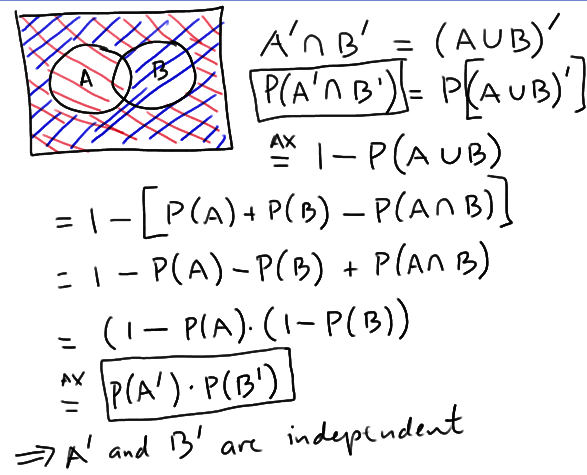 A B
A′∩ B′ = (A∪B)′
P(A′∩ B′) = P[(A∪B)′]
AX
= 1 − P(A∪B)
= 1 − [P(A) + P(B) − P(A∩B)]
= 1 − P(A) − P(B) + P(A∩B)
= (1 − P(A)·(1 − P(B))
AX
= P(A′)·P(B′)
⇒ A′ and B′ are independent